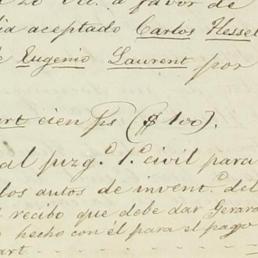 a favor de
aceptado Carlos Hessel
Eugenio Laurent por
art cien ps ($ 100).
al juzg.º 1.º civil para
los autos de invent.º del
recibo que debe dar Gerard
hecho con él para el pago
art